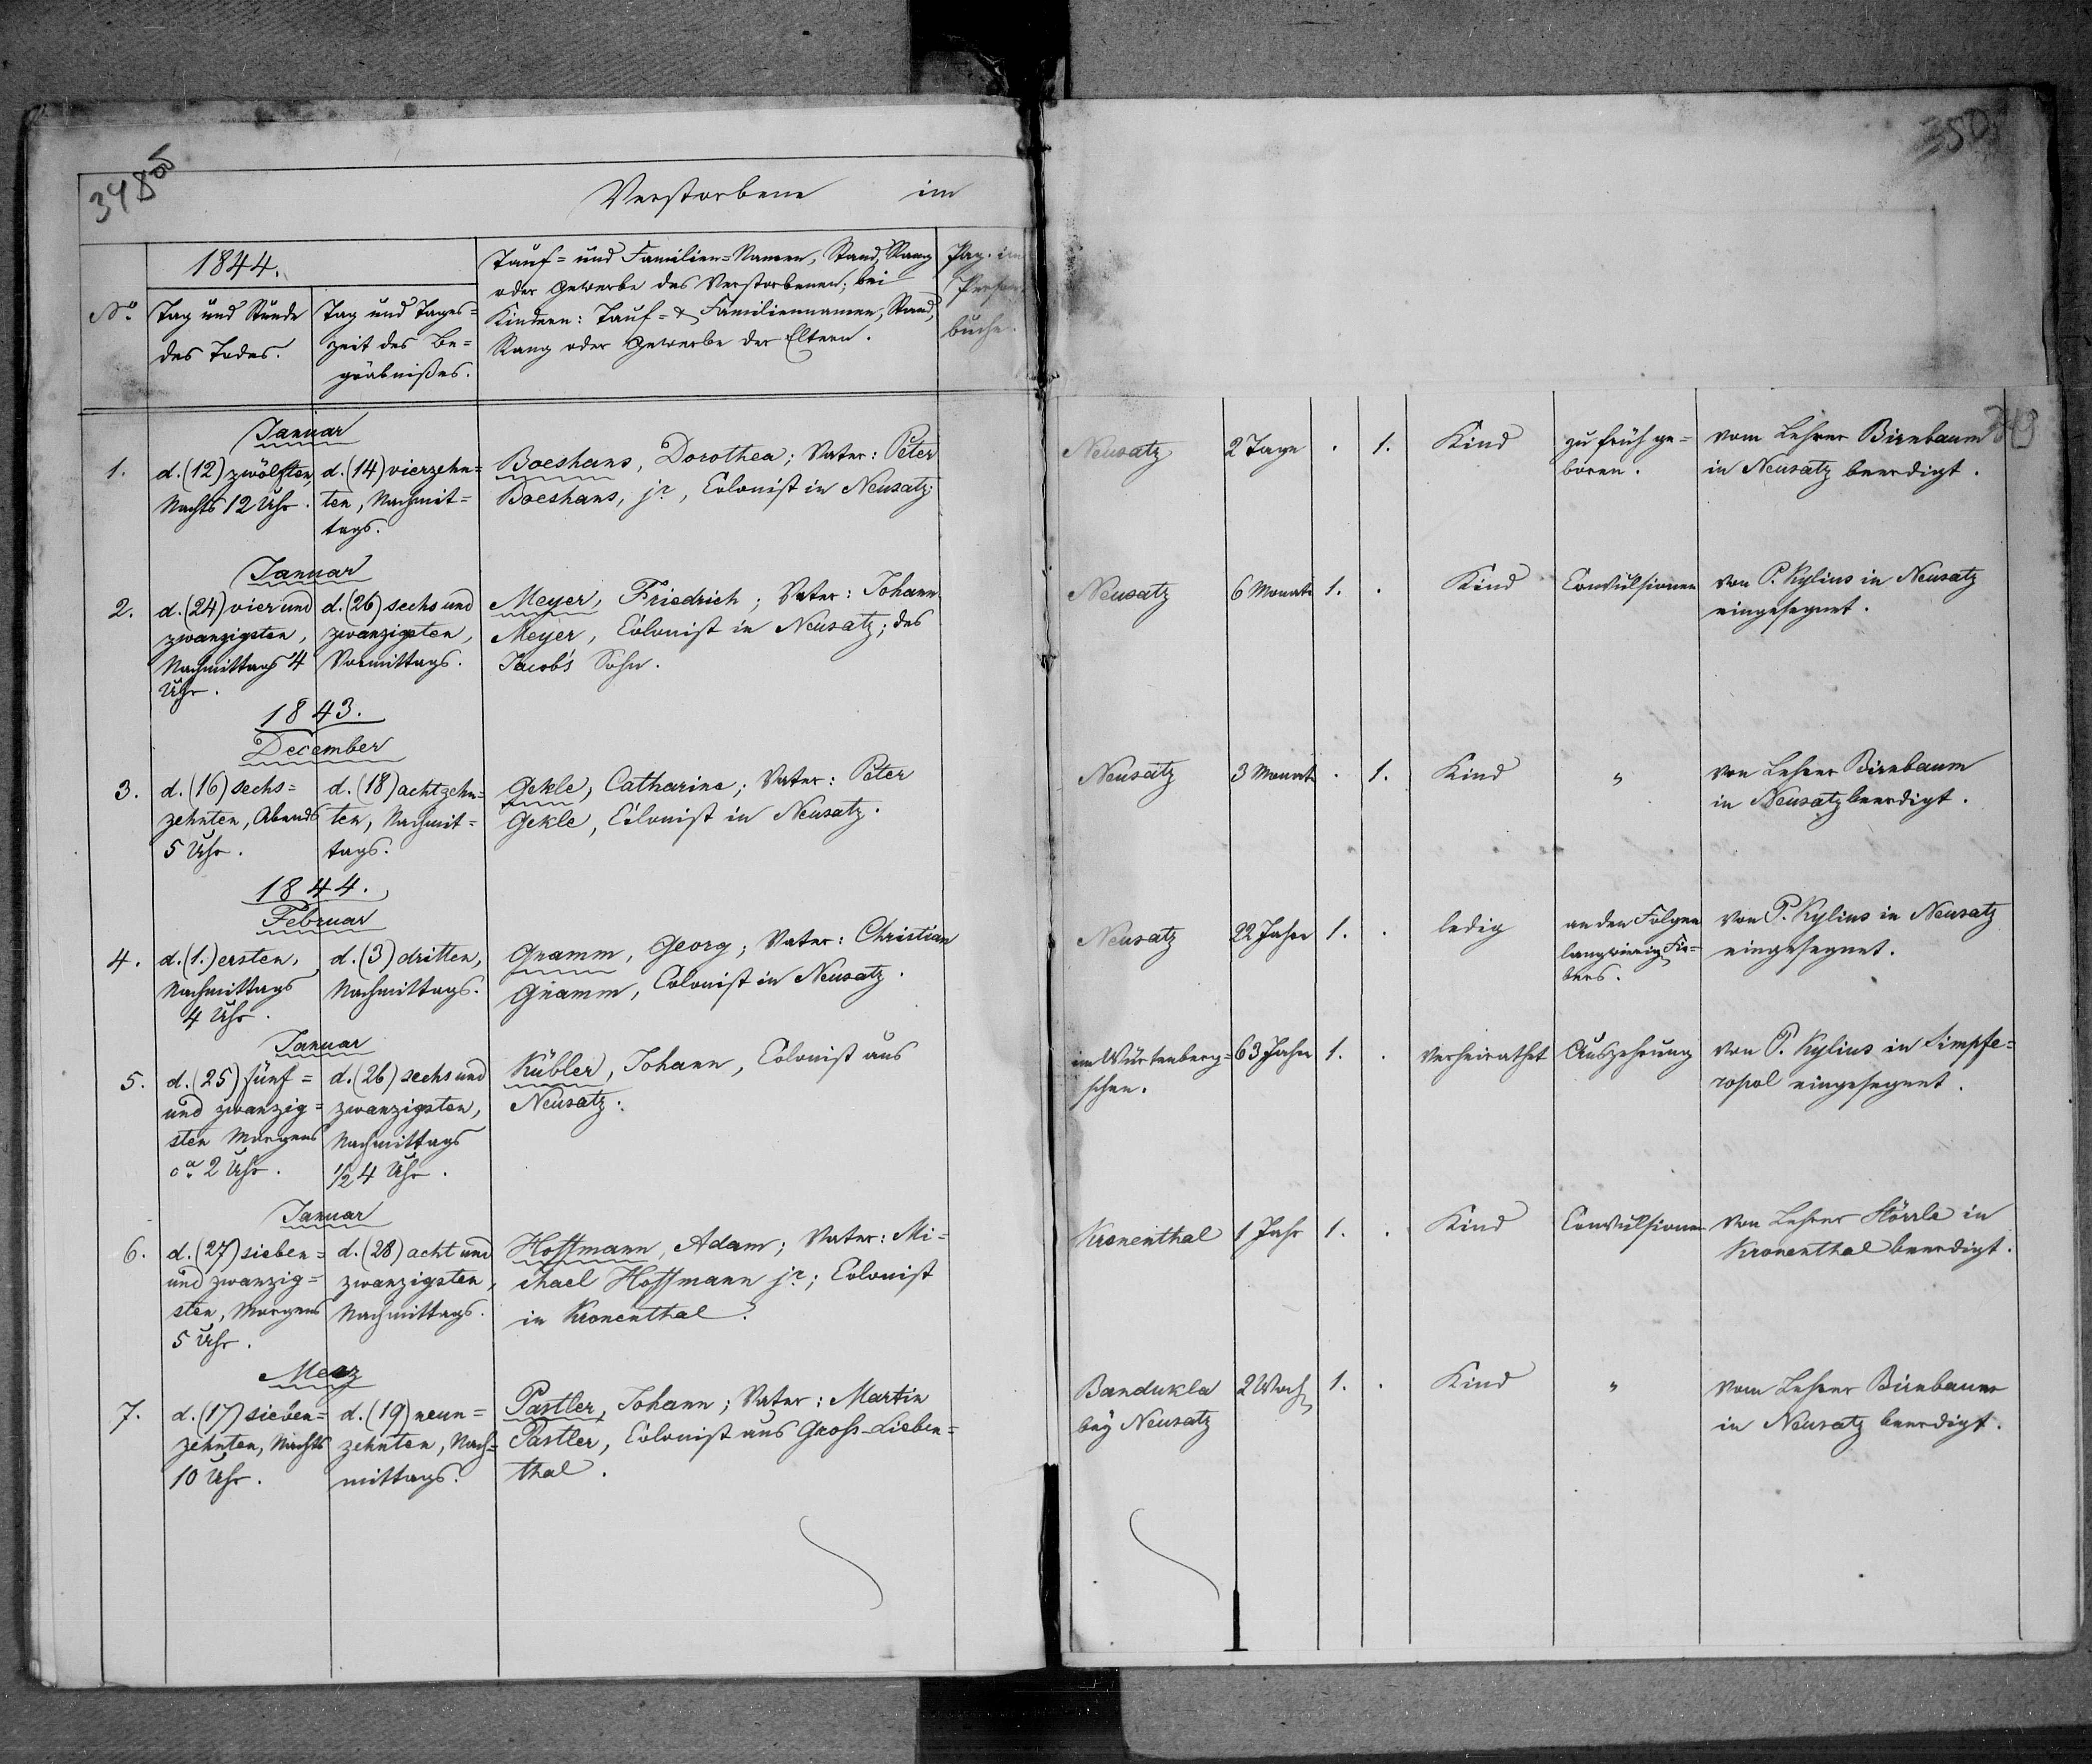 348
350
Verstorbene im
1844.
No.
Tag und Stunde
des Todes.
Tag und Tages=
zeit des Be=
gräbnißes.
Tauf= und Familien=Namen, Stand, Rang
oder Gewerbe des Verstorbenen; bei
Kindern: Tauf= & Familiennamen, Stand,
Rang oder Gewerbe der Eltern.
Pag. im
Person
buche.
Januar
1.
d. (12) zwölften
Nachts 12 Uhr.
d. (14) vierzehn=
ten, Nachmit=
tags.
Boeshans, Dorothea; Vater: Peter
Boeshans, jr., Colonist in Neusatz.
Neusatz
2 Tage
.
1.
Kind
zu früh ge=
boren.
vom Lehrer Birnbaum
in Neusatz beerdigt.
Januar
2.
d. (24) vier und
zwanzigsten,
Nachmittags 4
Uhr.
d. (26) sechs und
zwanzigsten,
Vormittags.
Meyer, Friedrich; Vater: Johann
Meyer, Colonist in Neusatz; des
Jacob's Sohn.
Neusatz
6 Monate
1.
.
Kind
Convulsionen
von P. Kylius in Neusatz
eingesegnet.
1843.
December
3.
d. (16) sechs=
zehnten, Abends
5 Uhr.
d. (18) achtzehn=
ten, Nachmit=
tags.
Gekle, Catharina; Vater: Peter
Gekle, Colonist in Neusatz.
Neusatz
3 Monat
.
1.
Kind
"
von Lehrer Birnbaum
in Neusatz beerdigt.
1844.
Februar
4.
d. (1.) ersten,
Nachmittags
4 Uhr.
d. (3) dritten,
Nachmittags.
Gnamm, Georg; Vater: Christian
Gnamm, Colonist in Neusatz.
Neusatz
22 Jahre
1.
.
ledig
an den Folgen
langwierig Fie=
bers.
von P. Kylius in Neusatz
eingesegnet.
Januar
5.
d. (25) fünf=
und zwanzig=
sten Morgens
ca. 2 Uhr.
d. (26) sechs und
zwanzigsten,
Nachmittags
1/2 4 Uhr.
Kübler, Johann, Colonist aus
Neusatz.
im Würtenberg=
schen.
63 Jahre
1.
.
verheirathet
Auszehrung
von P. Kylius in Simpfe=
ropol eingesegnet.
Januar
6.
d. (27) sieben=
und zwanzig=
sten, Morgens
5 Uhr.
d. (28) acht und
zwanzigsten,
Nachmittags.
Hoffmann, Adam; Vater: Mi=
chael Hoffmann jr.; Colonist
in Kronenthal.
Kronenthal
1 Jahr
1.
.
Kind
Convulsionen
von Lehrer Hörrle in
Kronenthal beerdigt.
Merz
7.
d. (17) sieben=
zehnten, Nachts
10 Uhr.
d. (19) neun=
zehnten, Nach=
mittags.
Pastler, Johann; Vater: Martin
Pastler, Colonist aus Gross-Lieben=
thal.
Bandukla
bey Neusatz
2 Woch
1.
.
Kind
"
vom Lehrer Birnbaum
in Neusatz beerdigt.